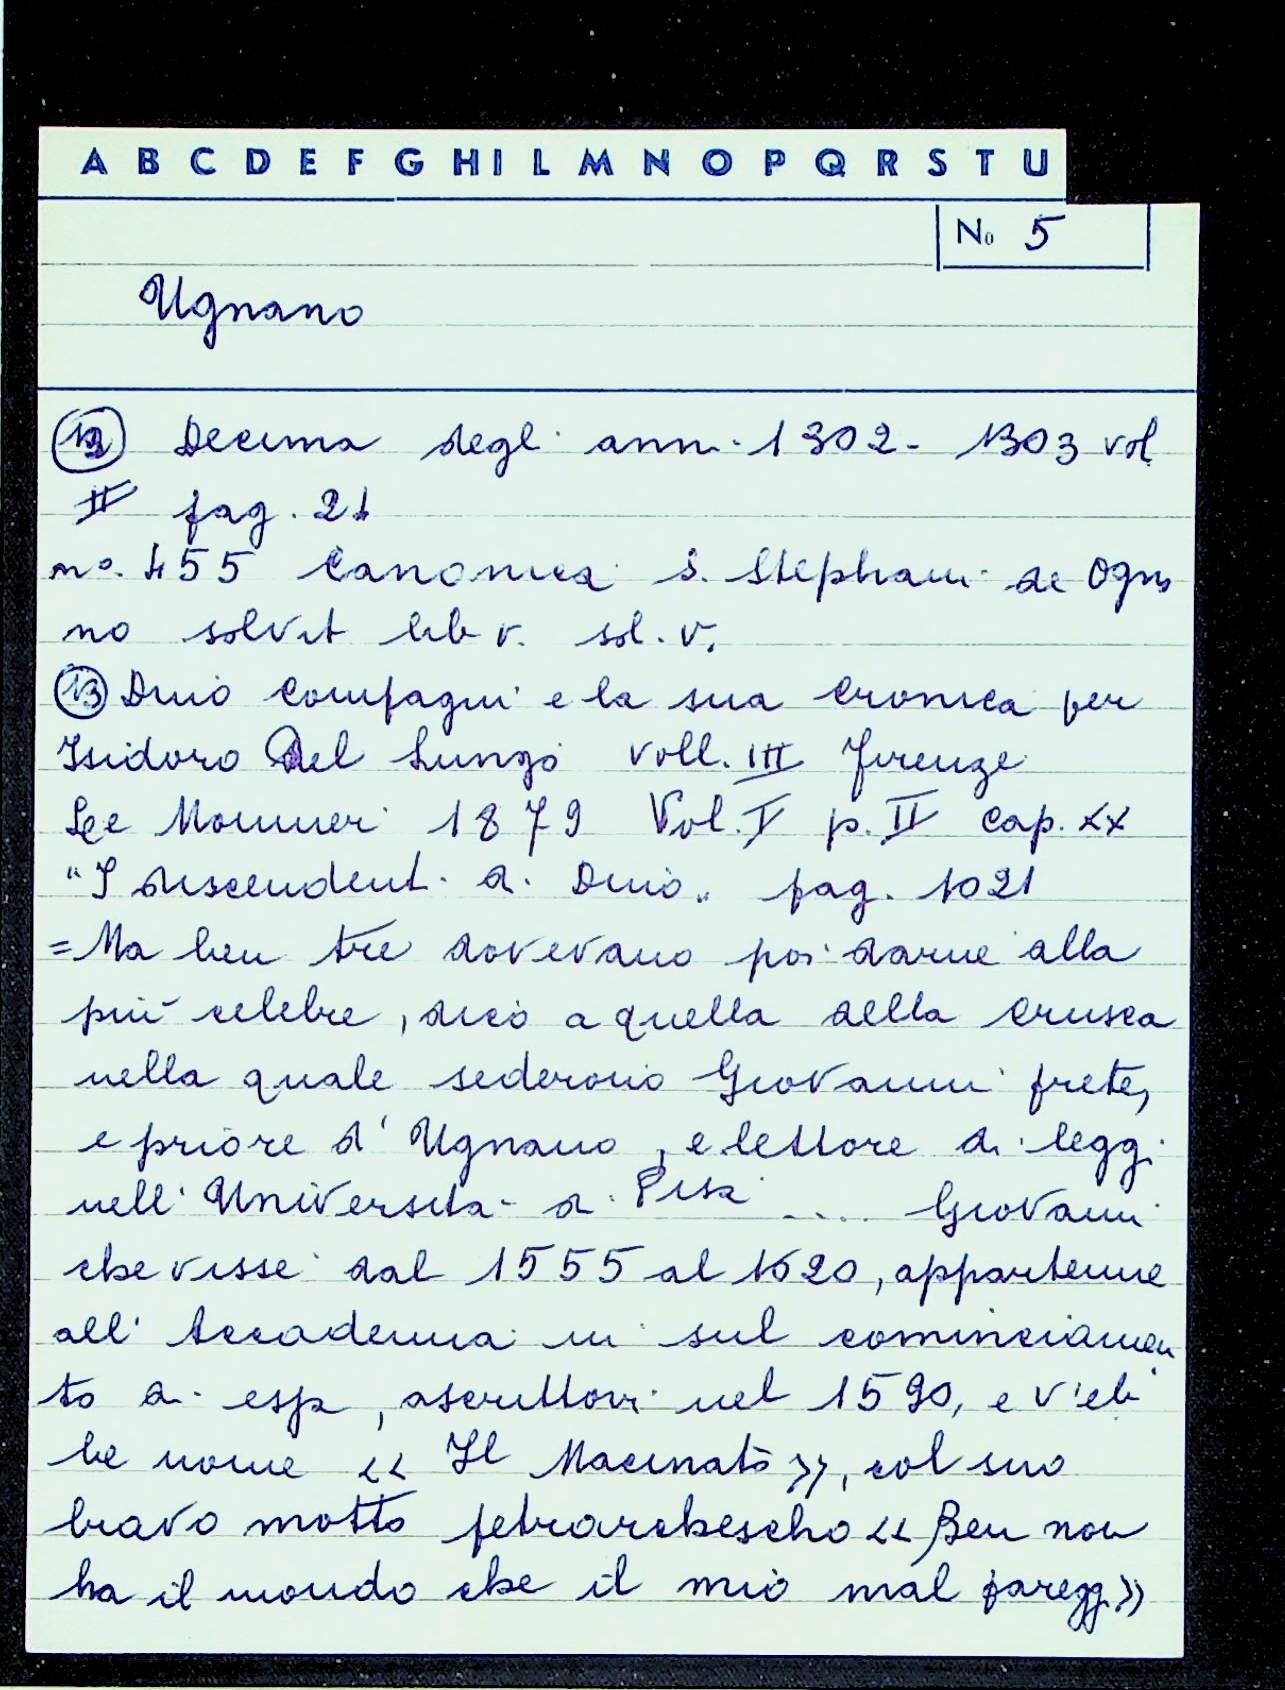 A B C D E F G H I L M N O P Q R S T U
No 5
Ugnano
12 Decima degli anni 1302-1303 vol
II pag. 21
no. 455 Canonica S. Stephani de Ogna
no solvit lib v. sol. v.
13 Dino Compagni e la sua Cronica per
Isidoro Del Lungo voll. III Firenze
Le Monnier 1879 Vol. I p. II cap. XX
"I discendenti di Dino" pag. 1021
= Ma ben tre dovevano poi darne alla
più celebre, dico a quella della Crusca
nella quale sederono Giovanni prete,
e priore d'Ugnano, e lettore di leggi
nell'Università di Pisa .... Giovanni
che visse dal 1555 al 1620, appartenne
all'Accademia in sul cominciamen
to di essa, ascrittovi nel 1590, e v'eb
be nome << Il Macinato >>, col suo
bravo motto petrarchescho << Ben non
ha il mondo che il mio mal paregg. >>